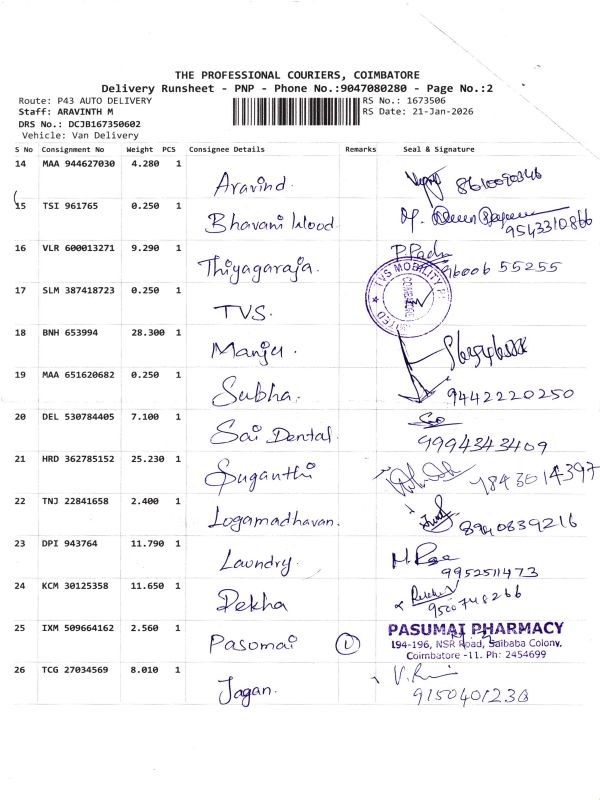 THE PROFESSIONAL COURIERS, COIMBATORE
Delivery Runsheet - PNP - Phone No.:9047080280 - Page No.:2
Route: P43 AUTO DELIVERY RS No.: 1673506
Staff: ARAVINTH M RS Date: 21-Jan-2026
DRS No.: DCJB167350602
Vehicle: Van Delivery
S No Consignment No Weight PCS Consignee Details Remarks Seal & Signature
14 MAA 944627030 4.280 1 Aravind.
15 TSI 961765 0.250 1 Bhavani Wood 9543310866
16 VLR 600013271 9.290 1 Thiyagaraja. 96006 55255
17 SLM 387418723 0.250 1 TVS. TVS MOBILITY COIMBATORE
18 BNH 653994 28.300 1 Manju.
19 MAA 651620682 0.250 1 Subha. 9442220250
20 DEL 530784405 7.100 1 Sai Dental. 9994343409
21 HRD 362785152 25.230 1 Suganthi 7843014397
22 TNJ 22841658 2.400 1 Logamadhavan. 8940839216
23 DPI 943764 11.790 1 Laundry. 9952511473
24 KCM 30125358 11.650 1 Rekha 9500748266
25 IXM 509664162 2.560 1 Pasumai PASUMAI PHARMACY
194-196, NSR Road, Saibaba Colony,
Coimbatore -11. Ph: 2454699
26 TCG 27034569 8.010 1 Jagan.